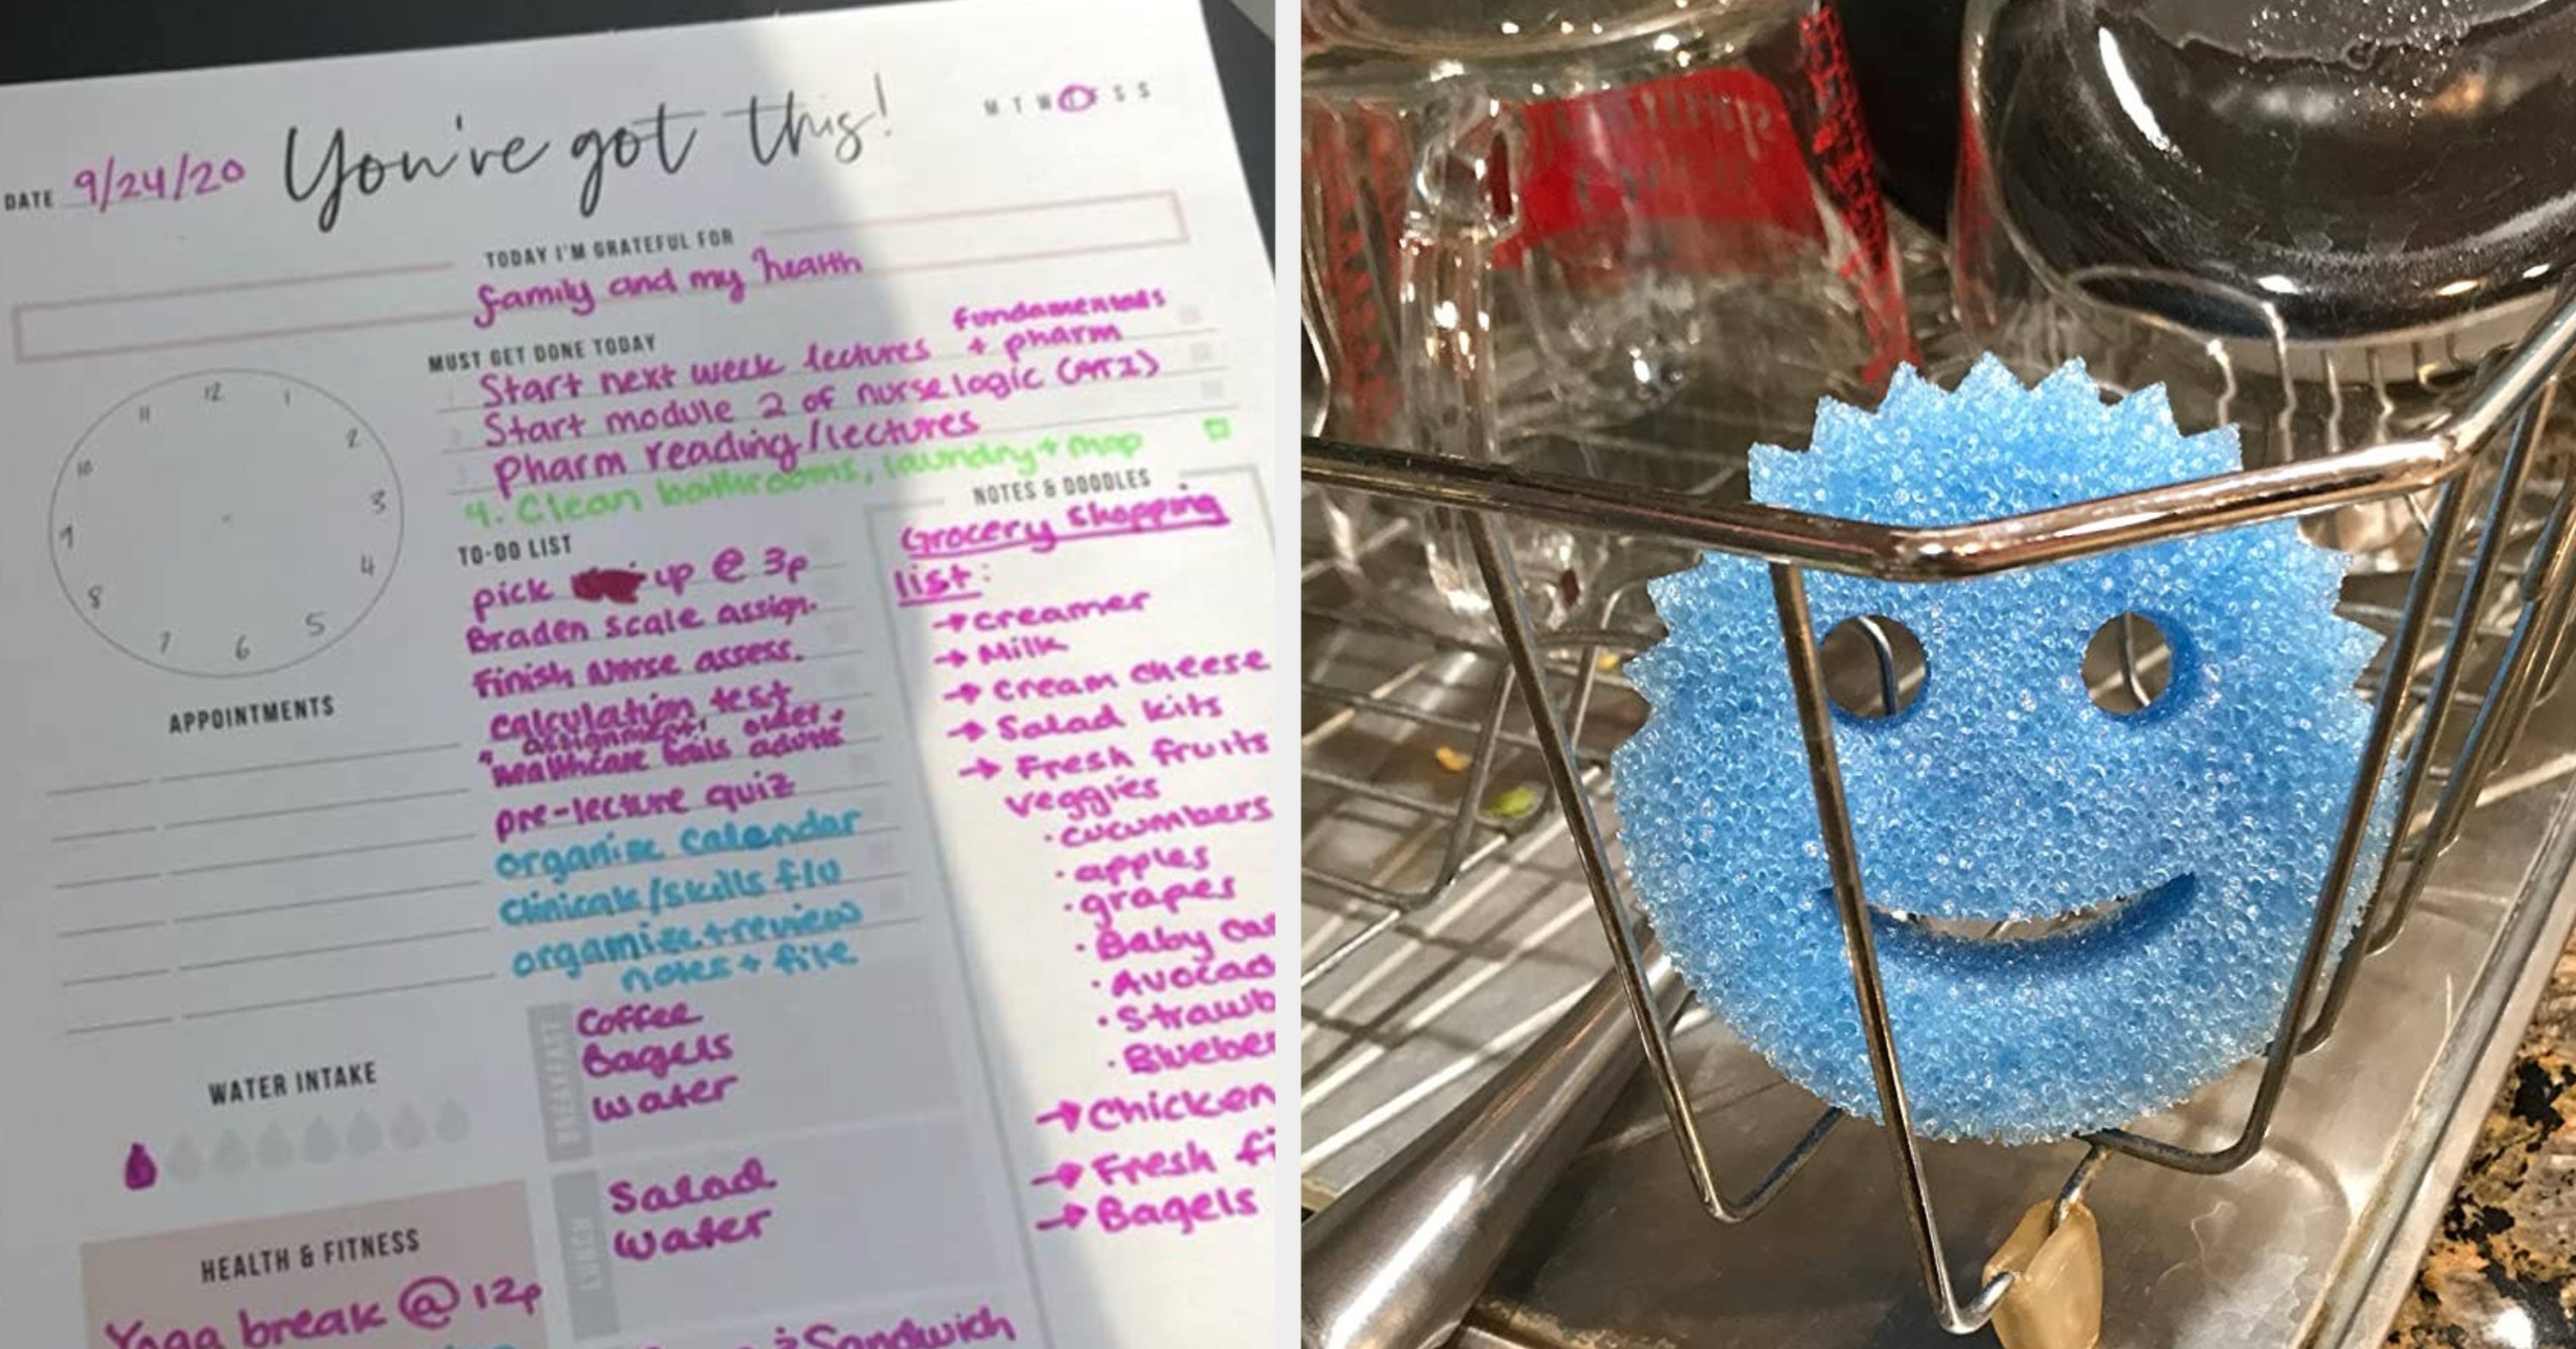 DATE 9/24/20
You've got this!
M T W T F S S
TODAY I'M GRATEFUL FOR
family and my health
MUST GET DONE TODAY
1 Start next week lectures fundamentals + pharm
2 Start module 2 of nurse logic (ATI)
3 Pharm reading/lectures
4. Clean bathrooms, laundry + mop
12
1
2
3
4
5
6
7
8
9
10
11
APPOINTMENTS
TO-DO LIST
pick up @ 3p
Braden scale assign.
Finish Nurse assess.
calculation test
"assignment" older
healthcare goals adults
pre-lecture quiz
organize calendar
clinicals/skills flu
organize + review
notes + file
NOTES & DOODLES
Grocery shopping
list:
→ creamer
→ Milk
→ cream cheese
→ Salad kits
→ Fresh fruits
veggies
· cucumbers
· apples
· grapes
· Baby car
· Avocad
· Strawb
· Blueber
→ Chicken
→ Fresh fi
→ Bagels
WATER INTAKE
BREAKFAST
Coffee
Bagels
water
LUNCH
Salad
water
HEALTH & FITNESS
Yoga break @ 12p
Sandwich